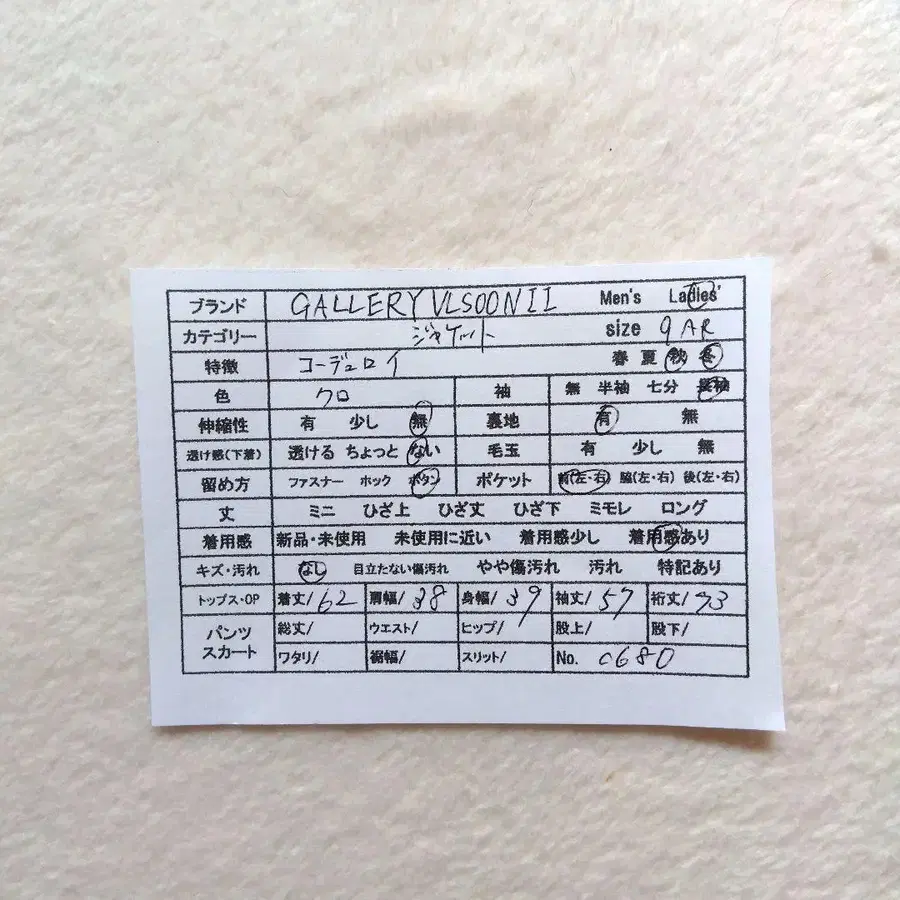 ブランド GALLERYVLSOONII Men's Ladies'
カテゴリー ジャケット size 9AR
特徴 コーデュロイ 春 夏 秋 冬
色 クロ 袖 無 半袖 七分 長袖
伸縮性 有 少し 無 裏地 有 無
透け感(下着) 透ける ちょっと ない 毛玉 有 少し 無
留め方 ファスナー ホック ボタン ポケット 前(左・右) 脇(左・右) 後(左・右)
丈 ミニ ひざ上 ひざ丈 ひざ下 ミモレ ロング
着用感 新品・未使用 未使用に近い 着用感少し 着用感あり
キズ・汚れ なし 目立たない傷汚れ やや傷汚れ 汚れ 特記あり
トップス・OP 着丈/62 肩幅/38 身幅/39 袖丈/57 裄丈/73
パンツ スカート 総丈/ ウエスト/ ヒップ/ 股上/ 股下/
ワタリ/ 裾幅/ スリット/ No. c680